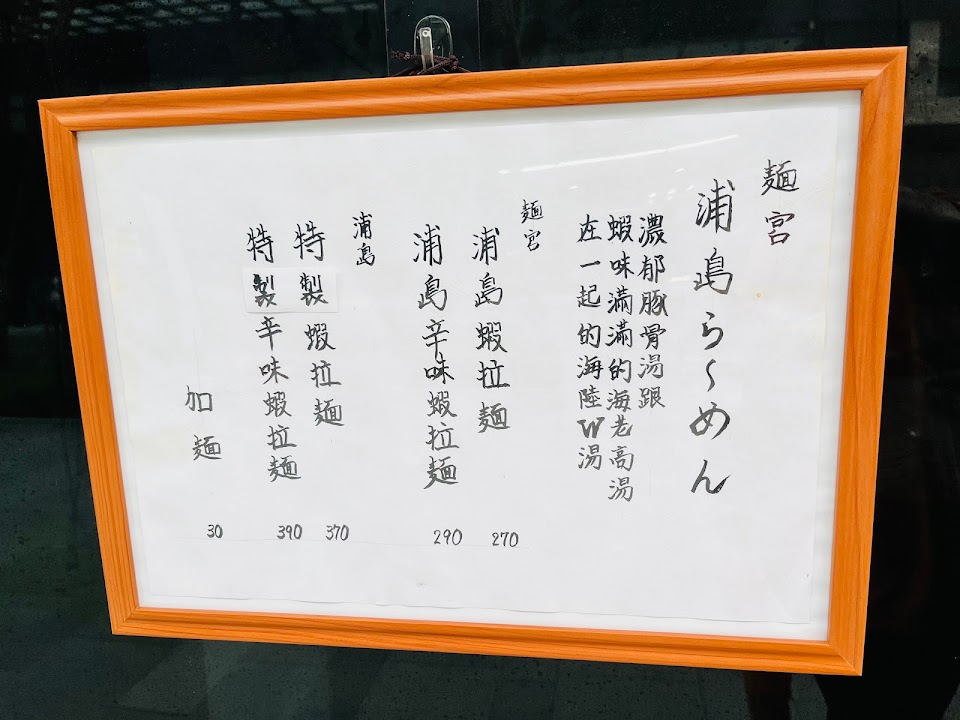 麵宮
浦島ら〜めん
濃郁豚骨湯跟
蝦味滿滿的海老高湯
在一起的海陸W湯
麵宮
浦島蝦拉麵 270
浦島辛味蝦拉麵 290
浦島
特製蝦拉麵 370
特製辛味蝦拉麵 390
加麵 30